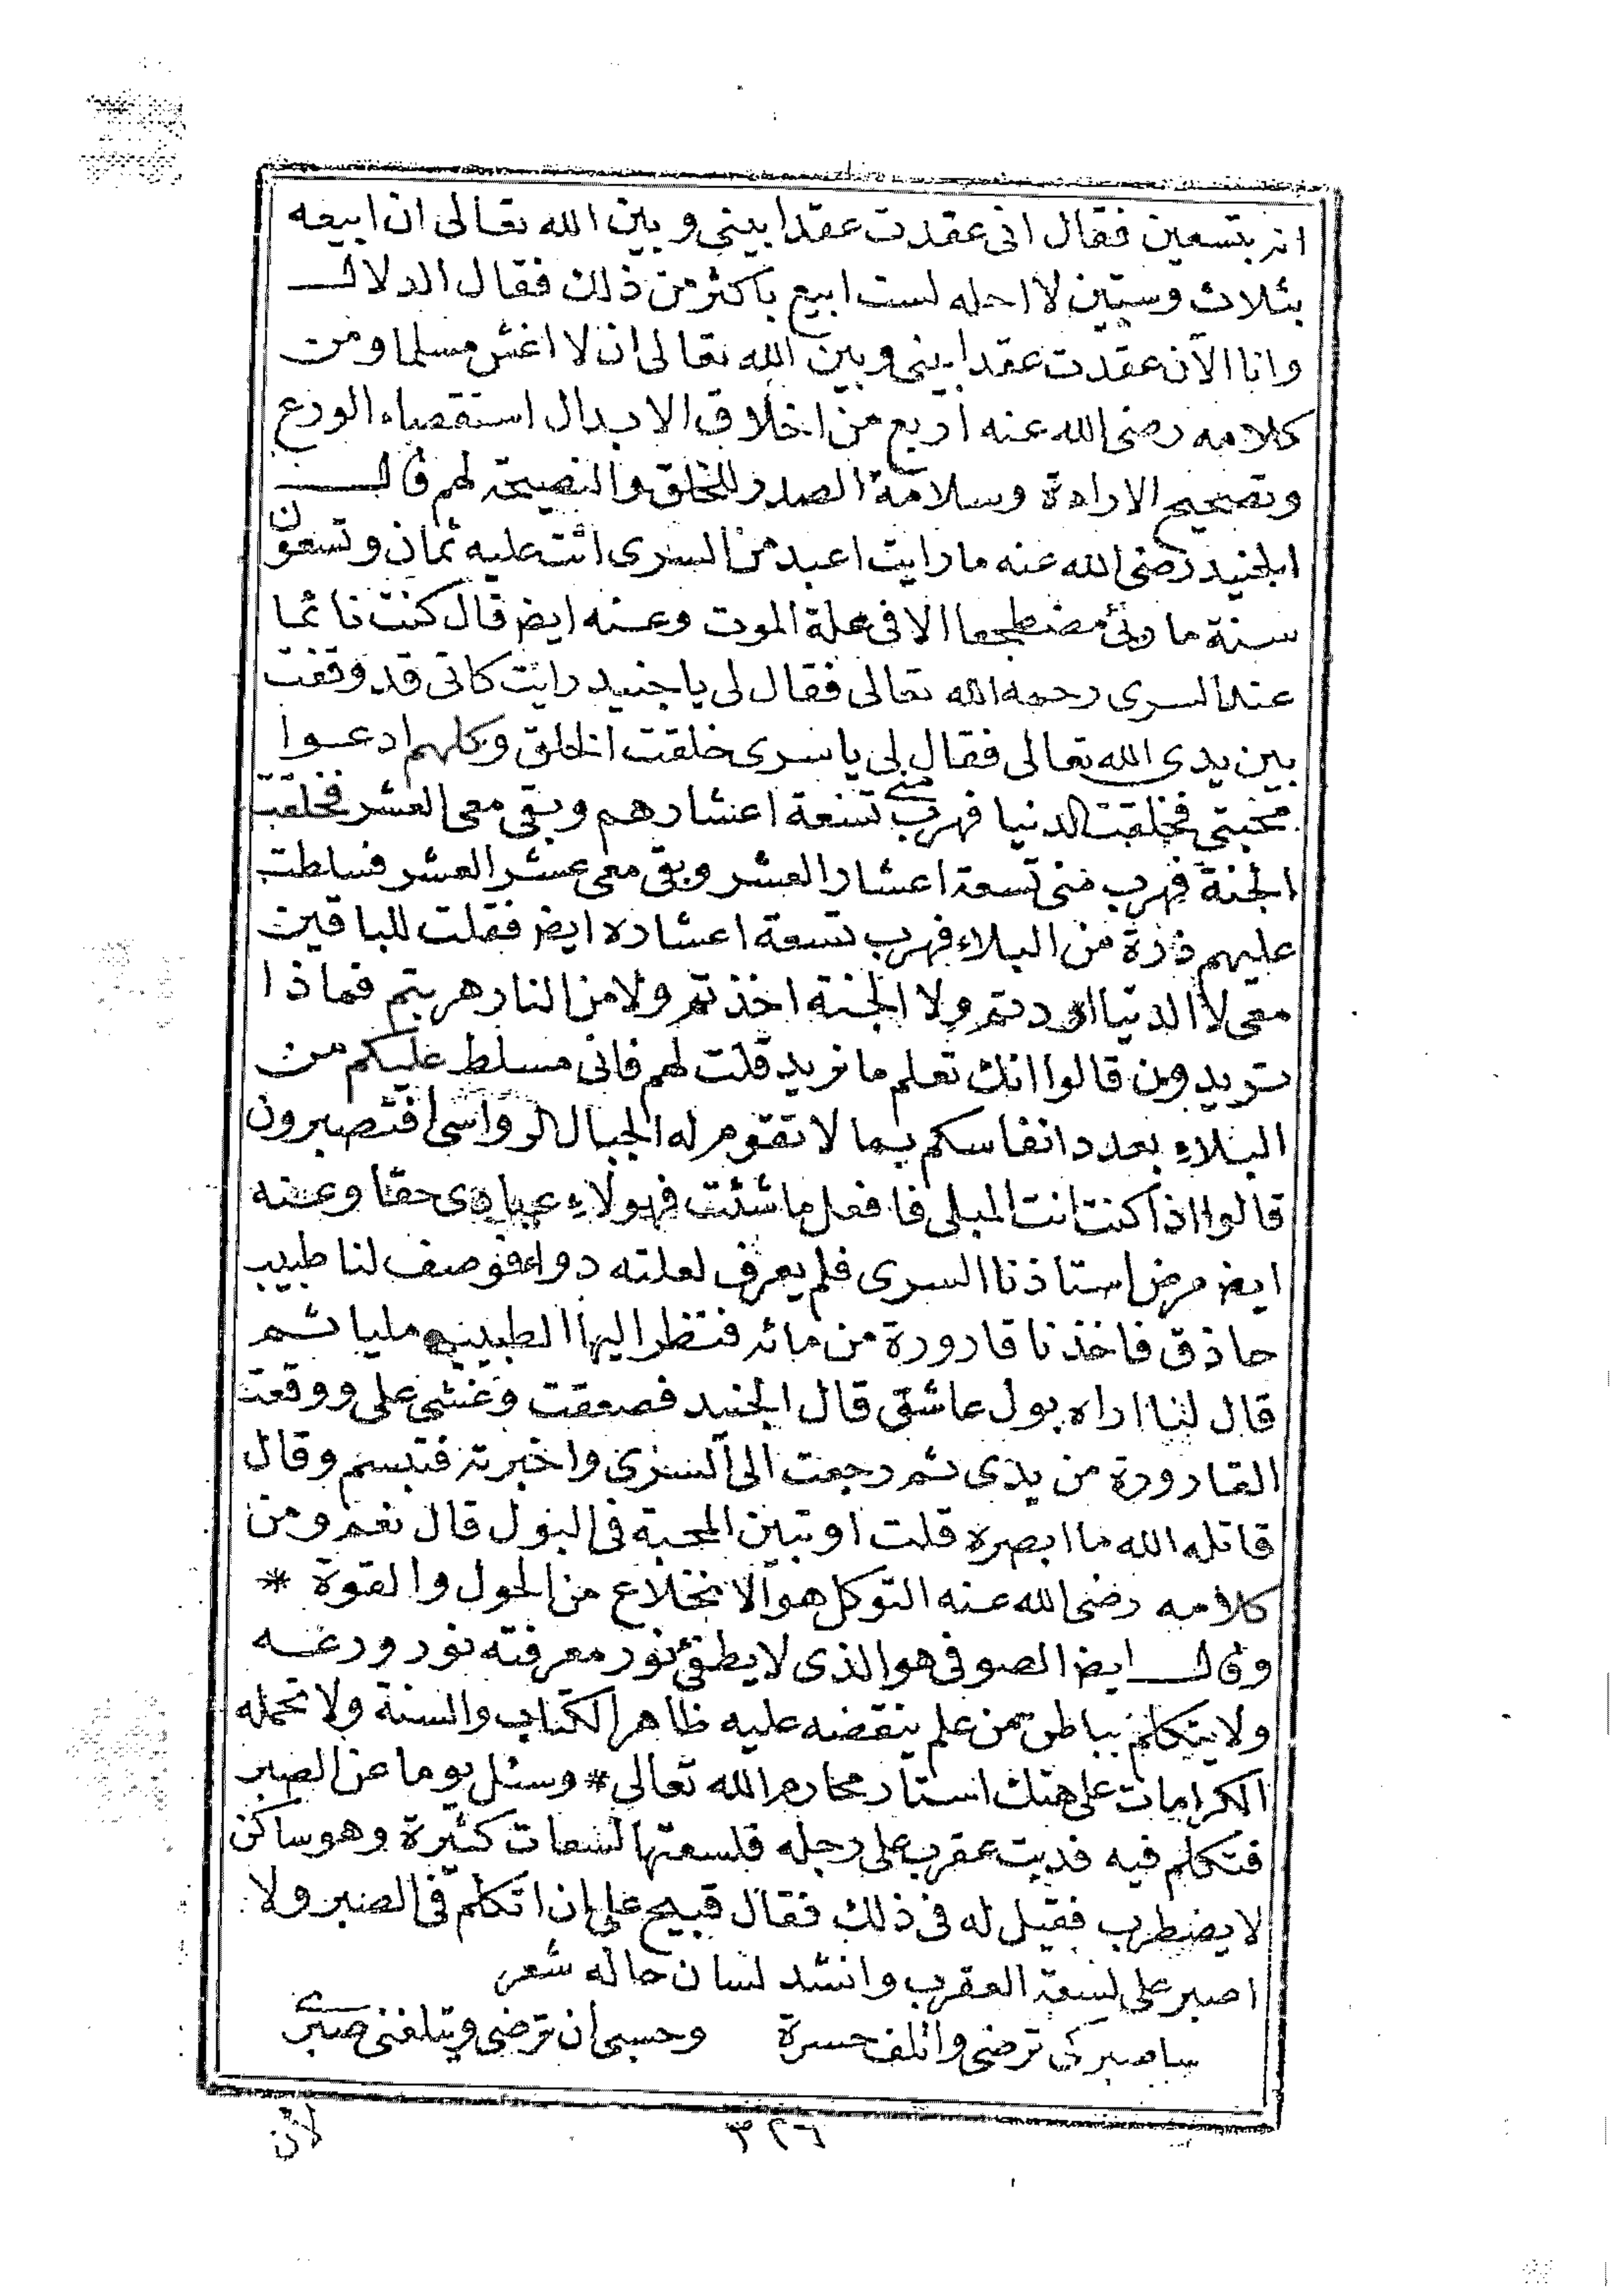 انه بتسعين فقال انى عقدت عقدا بيني وبين الله تعالى ان ابيعه
بثلاث وستين لا احله لست ابيع باكثر من ذلك فقال الدلال
وانا الآن عقدت عقدا بينى وبين الله تعالى ان لا اغش مسلما ومن
كلامه رضى الله عنه اربع من اخلاق الابدال استقصاء الورع
وتصحيح الارادة وسلامة الصدر للخلق والنصيحة لهم قال
الجنيد رضى الله عنه ما رايت اعبد من السرى اتت عليه ثمان وتسعون
سنة ما رئى مضطجعا الا فى علة الموت وعنه ايضا قال كنت نائما
عند السرى رحمه الله تعالى فقال لى يا جنيد رايت كانى قد وقفت
بين يدى الله تعالى فقال لى يا سرى خلقت الخلق وكلهم ادعوا
محبتى فخلقت الدنيا فهرب منى تسعة اعشارهم وبقى معى العشر فخلقت
الجنة فهرب منى تسعة اعشار العشر وبقى معى عشر العشر فسلطت
عليهم ذرة من البلاء فهرب تسعة اعشاره ايضا فقلت للباقين
معى لا الدنيا اردتم ولا الجنة اخذتم ولا من النار هربتم فماذا
تريدون قالوا انك تعلم ما نريد قلت لهم فانى مسلط عليكم من
البلاء بعدد انفاسكم بما لا تقوم له الجبال الرواسى افتصبرون
قالوا اذا كنت انت المبلى فافعل ما شئت فهولاء عبادى حقا وعنه
ايضا مرض استاذنا السرى فلم يعرف لعلته دواء فوصف لنا طبيب
حاذق فاخذنا قارورة من مائه فنظر اليها الطبيب مليا ثم
قال لنا اراه بول عاشق قال الجنيد فصعقت وغشى على ووقعت
القارورة من يدى ثم رجعت الى السرى واخبرته فتبسم وقال
قاتله الله ما ابصره قلت او تبين المحبة فى البول قال نعم ومن
كلامه رضى الله عنه التوكل هو الانخلاع من الحول والقوة *
وقال ايضا الصوفى هو الذى لا يطفئ نور معرفته نور ورعه
ولا يتكلم بباطن من علم ينقضه عليه ظاهر الكتاب والسنة ولا تحمله
الكرامات على هتك استار محارم الله تعالى * وسئل يوما عن الصبر
فتكلم فيه فدبت عقرب على رجله فلسعتها لسعات كثيرة وهو ساكن
لا يضطرب فقيل له فى ذلك فقال قبيح على ان اتكلم فى الصبر ولا
اصبر على لسعة العقرب وانشد لسان حاله شعر
ساصبر كى ترضى واتلف حسرة وحسبى ان ترضى ويتلفنى صبرى
٣٢٦
لان